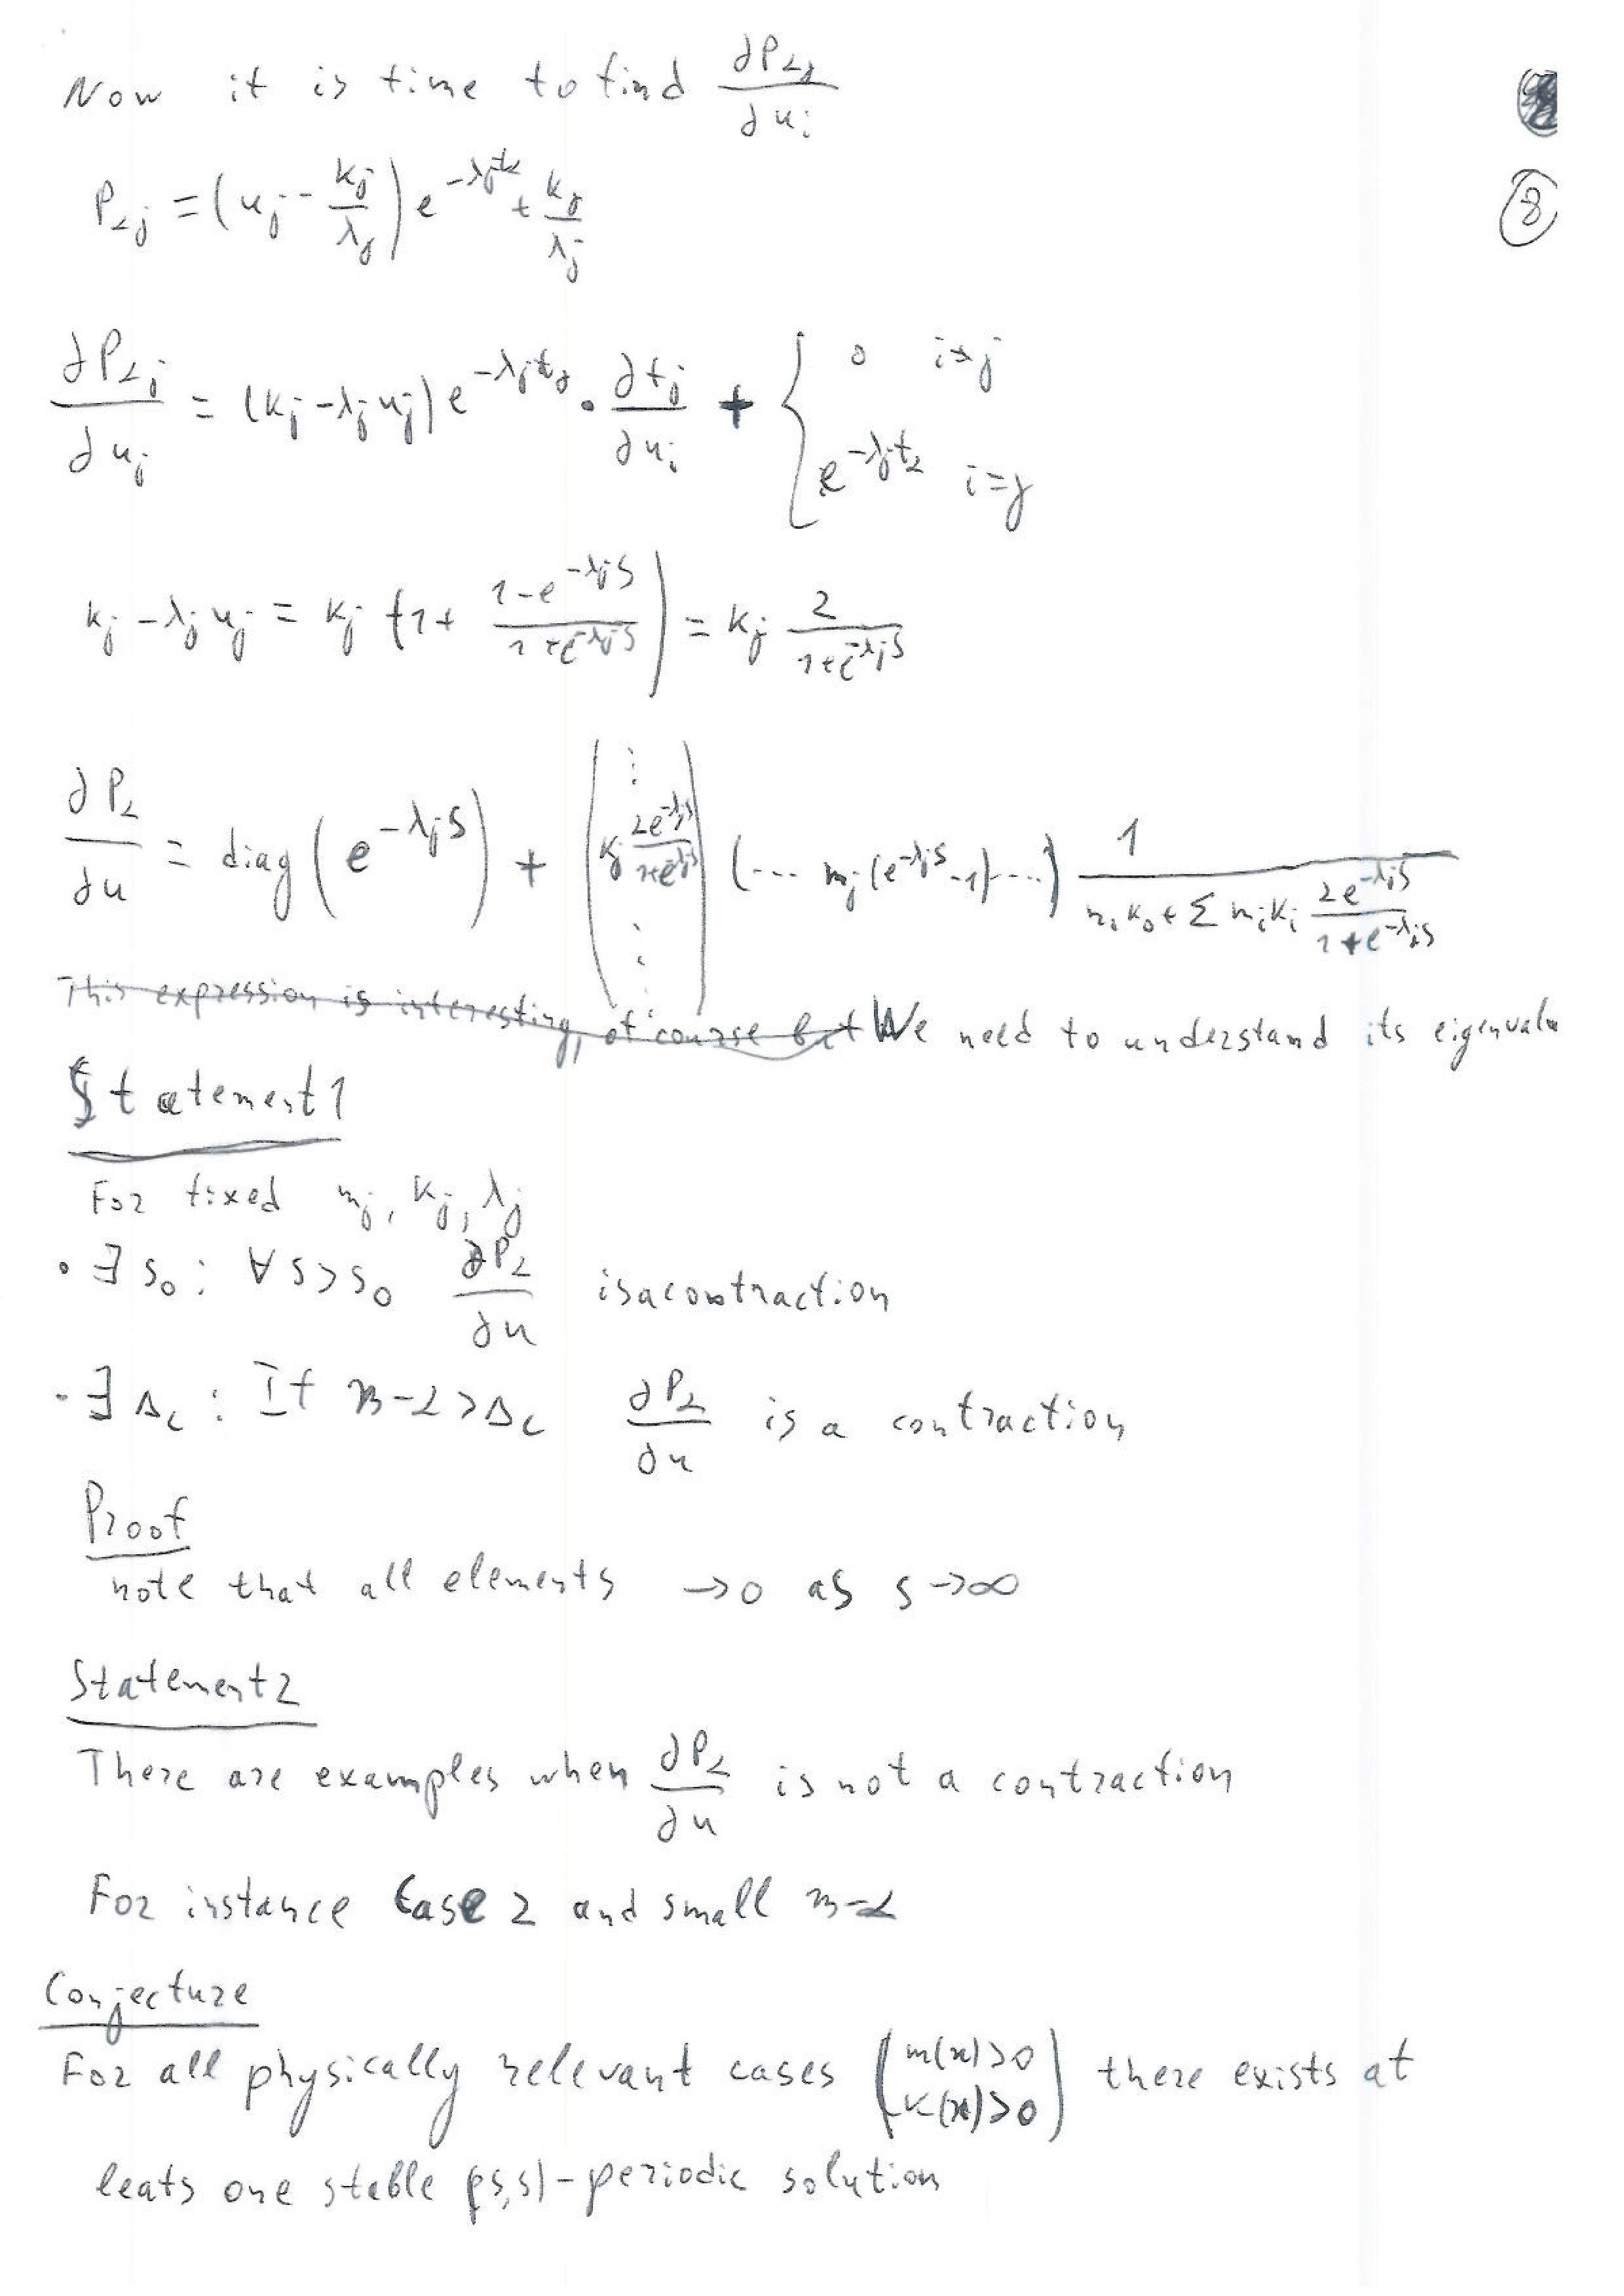 Now it is time to find ∂P₂ⱼ/∂uᵢ
⑧
P₂ⱼ = (uⱼ - kⱼ/λⱼ) e^{-λⱼt₂} + kⱼ/λⱼ
∂P₂ⱼ/∂uⱼ = (kⱼ - λⱼuⱼ) e^{-λⱼt₂} · ∂tⱼ/∂uᵢ + { 0 i≠j
e^{-λⱼt₂} i=j
kⱼ - λⱼuⱼ = kⱼ (1 + (1-e^{-λⱼs})/(1+e^{-λⱼs})) = kⱼ 2/(1+e^{-λⱼs})
∂P₂/∂u = diag(e^{-λⱼs}) + (⋮ kⱼ 2e^{-λⱼs}/(1+e^{-λⱼs}) ⋮) (... mⱼ(e^{-λⱼs}-1) ...) 1/(m₀k₀ + Σ mᵢkᵢ 2e^{-λᵢs}/(1+e^{-λᵢs}))
This expression is interesting, of course but We need to understand its eigenvalu
Statement 1
For fixed mⱼ, kⱼ, λⱼ
• ∃ s₀ : ∀ s > s₀ ∂P₂/∂u is a contraction
• ∃ Δc : If β-α > Δc ∂P₂/∂u is a contraction
Proof
note that all elements →0 as s→∞
Statement 2
There are examples when ∂P₂/∂u is not a contraction
For instance Case 2 and small β-α
Conjecture
For all physically relevant cases (m(x)>0 K(x)>0) there exists at
leats one stable (s,s)-periodic solution